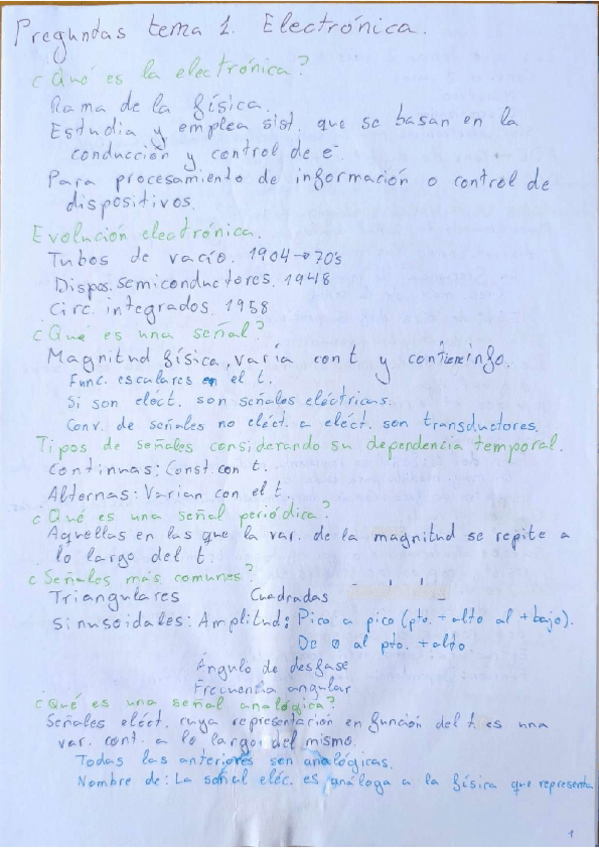 Pregundas tema 1. Electrónica.
¿Qué es la electrónica?
Rama de la física.
Estudia y emplea sist. que se basan en la
conducción y control de e⁻.
Para procesamiento de información o control de
dispositivos.
Evolución electrónica.
Tubos de vacío. 1904→70's
Dispos. semiconductores. 1948
Circ. integrados. 1958
¿Qué es una señal?
Magnitud física, varía con t y contiene info.
Func. escalares en el t.
Si son eléct. son señales eléctricas.
Conv. de señales no eléct. a eléct. son transductores.
Tipos de señales considerando su dependencia temporal.
Continuas: Const. con t.
Alternas: Varian con el t.
¿Qué es una señal periódica?
Aquellas en las que la var. de la magnitud se repite a
lo largo del t.
¿Señales más comunes?
Triangulares Cuadradas
Sinusoidales: Amplitud: Pico a pico (pto. + alto al + bajo).
De 0 al pto. + alto.
Ángulo de desfase
Frecuencia angular
¿Qué es una señal analógica?
Señales eléct. cuya representación en función del t es una
var. cont. a lo largo del mismo.
Todas las anteriores son analógicas.
Nombre de: La señal eléc. es análoga a la física que representa
1